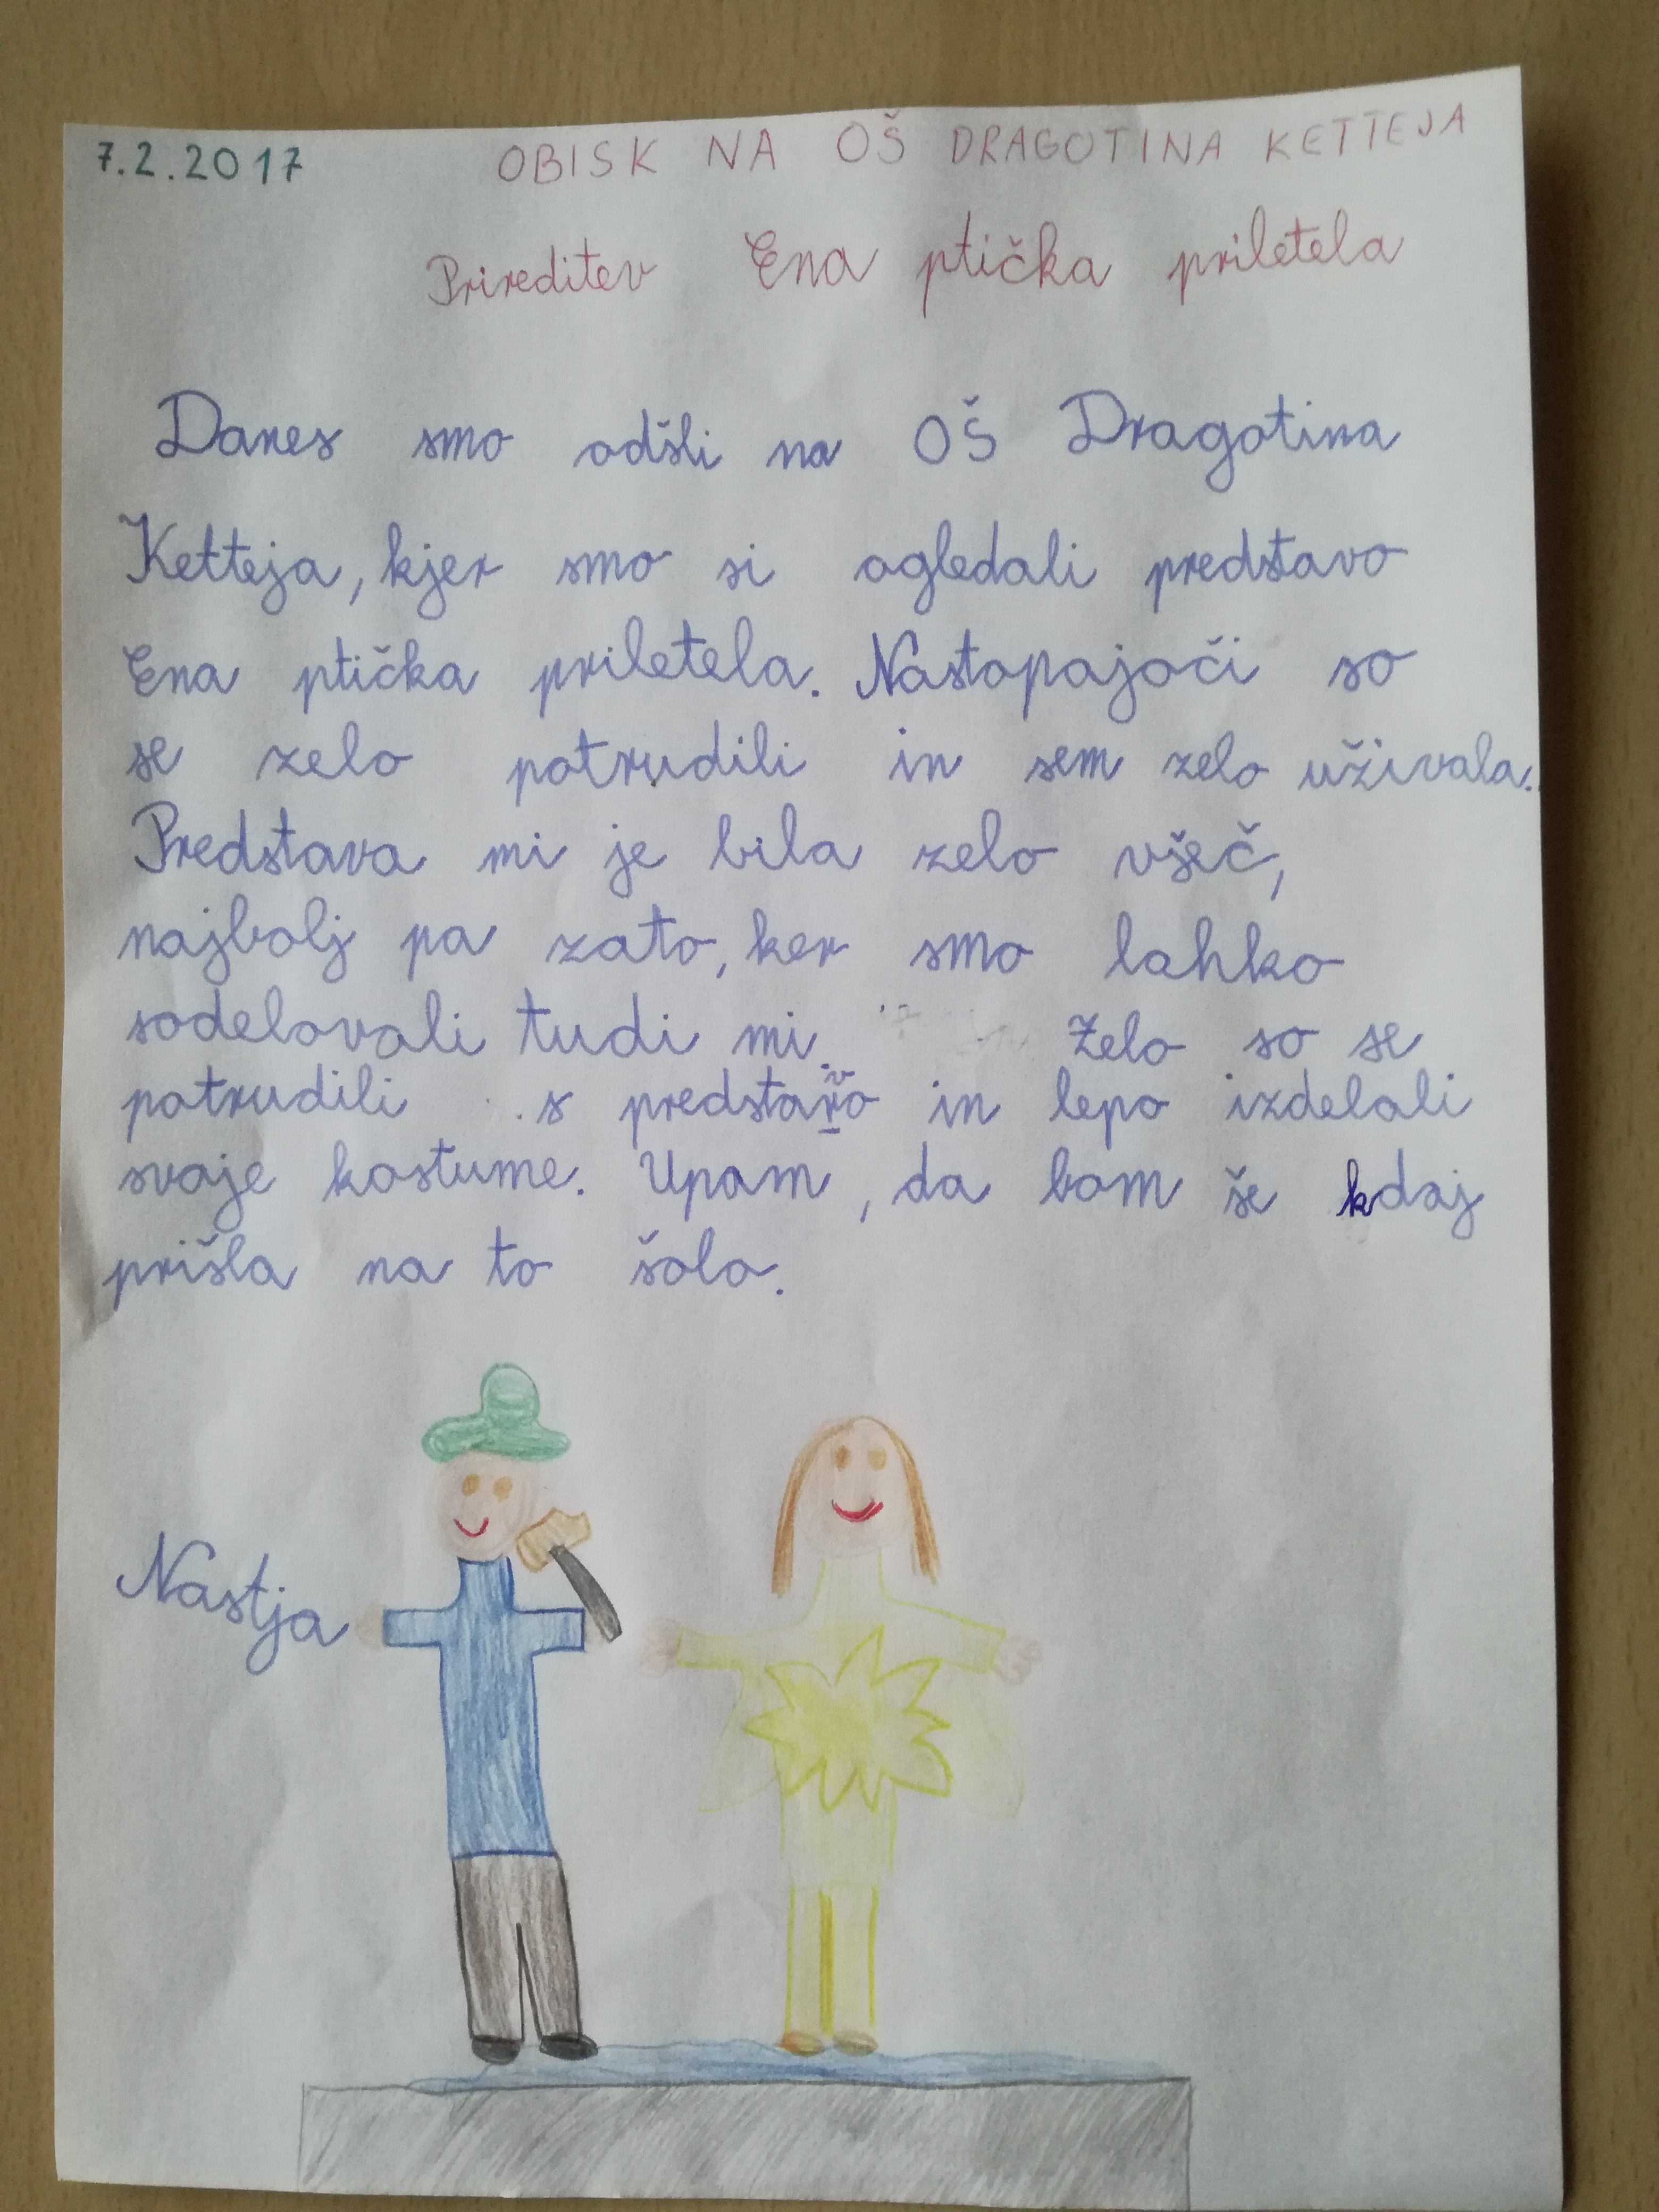 7.2.2017 OBISK NA OŠ DRAGOTINA KETTEJA
Prireditev Ena ptička priletela
Danes smo odšli na OŠ Dragotina
Ketteja, kjer smo si ogledali predstavo
Ena ptička priletela. Nastopajoči so
se zelo potrudili in sem zelo uživala.
Predstava mi je bila zelo všeč,
najbolj pa zato, ker smo lahko
sodelovali tudi mi. Zelo so se
potrudili s predstavo in lepo izdelali
svoje kostume. Upam, da bom še kdaj
prišla na to šolo.
Nastja